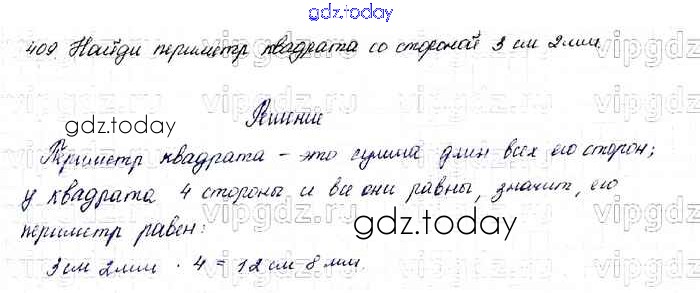 gdz.today
409. Найди периметр квадрата со стороной 3 см 2 мм.
Решение
gdz.today
Периметр квадрата - это сумма длин всех его сторон;
у квадрата 4 стороны и все они равны, значит, его
gdz.today
периметр равен:
3 см 2 мм · 4 = 12 см 8 мм.